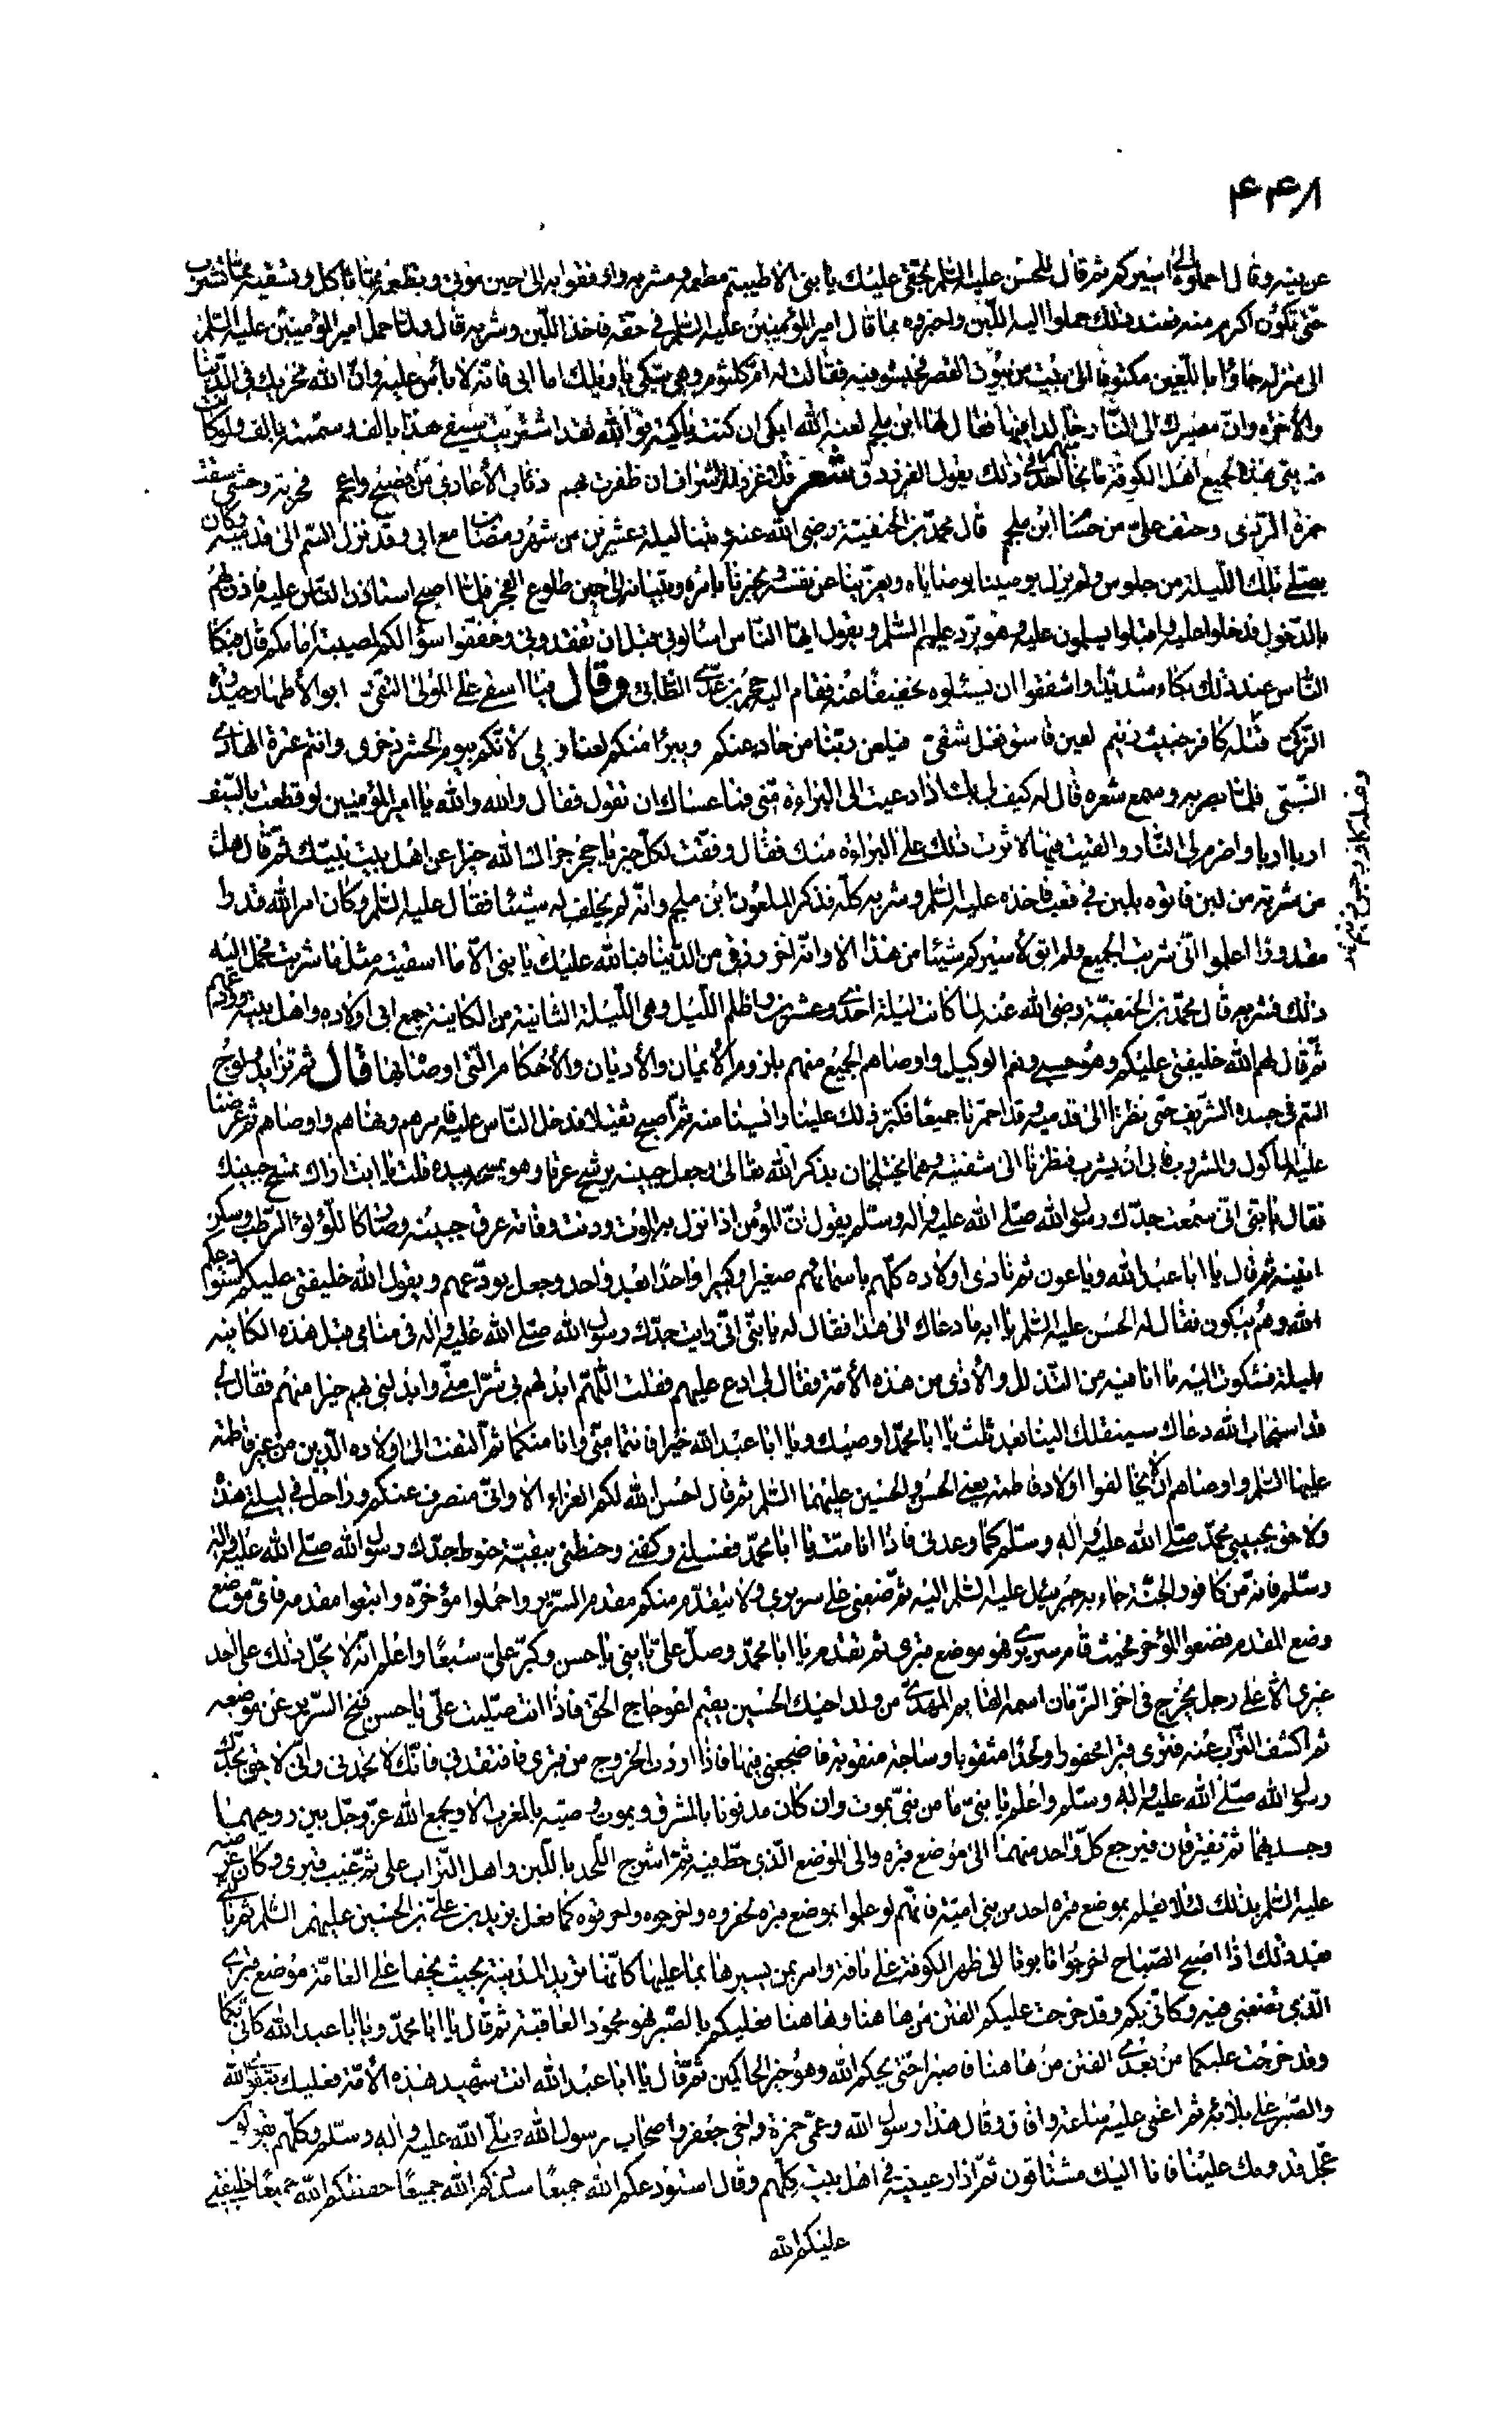 ۴۴۸
عن بينه وقال احملوه الى اسيركم ثم قال للحسن عليه السلم بحقى عليك يا بنى الا طيبتم مطعمه ومشربه وارفقوا به الى حين موتى وتطعمه مما تاكل وتسقيه مما تشرب
حتى تكون اكرم منه فعند ذلك حملوا اليه اللبن واخبروه بما قال امير المؤمنين عليه السلم فى حقه فاخذ اللبن وشربه قال ولما حمل امير المؤمنين عليه السلم
الى منزله جاؤا باللعين مكتوفا الى بيت من بيوت القصر فحبسوه فيه فقالت له ام كلثوم وهى تبكى يا ويلك اما ابى فانه لا باس عليه وان الله مخزيك فى الدنيا
والاخرة وان مصيرك الى النار خالدا فيها فقال لها ابن ملجم لعنه الله ابكى ان كنت باكية فوالله لقد اشتريت سيفى هذا بالف وسممته بالف ولو كانت
ضربتى هذه لجميع اهل الكوفة ما نجا منهم احد وفى ذلك يقول الفرزدق شعر فلا غرو للاشراف ان ظفرت بهم ذئاب الأعادى من فصيح واعجم فحربة وحشى سقت
حمزة الردى وحتف على من حسام ابن ملجم قال محمد بن الحنفية رضى الله عنه وبتنا ليلة عشرين من شهر رمضان مع ابى وقد نزل السم الى قدميه وكان
يصلى تلك الليلة من جلوس ولم يزل يوصينا بوصاياه ويعزينا عن نفسه ويخبرنا بامره وتبيانه الى حين طلوع الفجر فلما اصبح استاذن الناس عليه فاذن لهم
بالدخول فدخلوا عليه واقبلوا يسلمون عليه وهو يرد عليهم السلم ويقول ايها الناس اسئالونى قبل ان تفقدونى وخففوا سؤالكم لمصيبة امامكم قال فبكا
الناس عند ذلك بكاء شديدا واشفقوا ان يسئلوه تخفيفا عنه فقام اليه حجر بن عدى الطائى وقال فيا اسفى على المولى التقى ابو الأطهار حيدرة
الزكى قتله كافر حنيث زنيم لعين فاسق نغل شقى فيلعن ربنا من حاد عنكم ويبرأ منكم لعنا وبى لأنكم بيوم الحشر ذخرى وانتم عترة الهادى
النبى فلما بصر به وسمع شعره قال له كيف لى بك اذا دعيت الى البراءة منى فما عساك ان تقول فقال والله والله يا امير المؤمنين لو قطعت بالسيف
اربا اربا واضرم لى النار والقيت فيها لاثرت ذلك على البراءة منك فقال وفقت لكل خير يا حجر جزاك الله خيرا عن اهل بيت نبيك ثم قال هل
من شربة من لبن فاتوه بلبن فى قعب فاخذه عليه السلم وشربه كله فذكر الملعون ابن ملجم وانه لم يخلف له شيئا فقال عليه السلم وكان امر الله قدرا
مقدورا اعلموا انى شربت الجميع ولم ابق لأسيركم شيئا من هذا الا وانه اخر رزقى من الدنيا فبالله عليك يا بنى الا ما اسقيته مثل ما شربت فحمل اليه
ذلك فشربه قال محمد بن الحنفية رضى الله عنه لما كانت ليلة احدى وعشرين واظلم الليل وهى الليلة الثانية من الكاينة جمع ابى اولاده واهل بيته وودعهم
ثم قال لهم الله خليفتى عليكم وهو حسبى ونعم الوكيل واوصاهم الجميع منهم بلزوم الأيمان والأديان والأحكام التى اوصى بها قال ثم تزايد ولوج
السم فى جسده الشريف حتى نظرنا الى قدميه وقد احمرتا جميعا فكبر ذلك علينا وايسنا منه ثم اصبح ثقيلا فدخل الناس عليه فامرهم ونهاهم واوصاهم ثم عرضنا
عليه الماكول والمشروب فابى ان يشرب فنظرنا الى شفتيه وهما يختلجان بذكر الله تعالى وجعل جبينه يرشح عرقا وهو يمسحه بيده قلت يا ابت اراك تمسح جبينك
فقال يا بنى انى سمعت جدك رسول الله صلى الله عليه واله وسلم يقول ان المؤمن اذا نزل به الموت ودنت وفاته عرق جبينه وصار كاللؤلؤ الرطب وسكن
انينه ثم قال يا ابا عبد الله ويا عون ثم نادى اولاده كلهم باسمائهم صغيرا وكبيرا واحدا بعد واحد وجعل يودعهم ويقول الله خليفتى عليكم استودعكم
الله وهم يبكون فقال له الحسن عليه السلم يا ابه ما دعاك الى هذا فقال له يا بنى انى رايت جدك رسول الله صلى الله عليه واله فى منامى قبل هذه الكاينه
بليلة فشكوت اليه ما انا فيه من التذلل والأذى من هذه الأمة فقال لى ادع عليهم فقلت اللهم ابدلهم بى شرا منى وابدلنى بهم خيرا منهم فقال لى
قد استجاب الله دعاك سينقلك الينا بعد ثلث يا ابا محمد اوصيك ويا ابا عبد الله خيرا فانتما منى وانا منكما ثم التفت الى اولاده الذين من غير فاطمة
عليها السلم واوصاهم ان لا يخالفوا اولاد فاطمة يعنى الحسن والحسين عليهما السلم ثم قال احسن الله لكم العزاء الا وانى منصرف عنكم وراحل فى ليلتى هذه
ولاحق بحبيبى محمد صلى الله عليه واله وسلم كما وعدنى فاذا انا مت يا ابا محمد فغسلنى وكفنى وحنطنى ببقية حنوط جدك رسول الله صلى الله عليه واله
وسلم فانه من كافور الجنة جاء به جبرئيل عليه السلم اليه ثم ضعنى على سريرى ولا يتقدم منكم مقدم السرير واحملوا مؤخره واتبعوا مقدمه فاى موضع
وضع المقدم فضعوا المؤخر فحيث قام سريرى فهو موضع قبرى ثم تقدم يا ابا محمد وصل على يا بنى يا حسن وكبر على سبعا واعلم انه لا يحل ذلك على احد
غيرى الا على رجل يخرج فى اخر الزمان اسمه القايم المهدى من ولد اخيك الحسين يقيم اعوجاج الحق فاذا انت صليت على يا حسن فنح السرير عن موضعه
ثم اكشف التراب عنه فترى قبرا محفورا ولحدا مثقوبا وساجة منقوبة فاضجعنى فيها فاذا اردت الخروج من قبرى فافتقدنى فانك لا تجدنى وانى لاحق بجدك
رسول الله صلى الله عليه واله وسلم واعلم يا بنى ما من نبى يموت وان كان مدفونا بالمشرق ويموت وصيه بالمغرب الا ويجمع الله عز وجل بين روحيهما
وجسديهما ثم يفترقان فيرجع كل واحد منهما الى موضع قبره والى الموضع الذى حط فيه ثم اشرج اللحد باللبن واهل التراب على ثم غيب قبرى وكان غرضه
عليه السلم بذلك لئلا يعلم بموضع قبره احد من بنى امية فانهم لو علموا بموضع قبره لحفروه واخرجوه واحرقوه كما فعل بزيد بن على بن الحسين عليهم السلم ثم يا بنى
بعد ذلك اذا اصبح الصباح اخرجوا تابوتا الى ظهر الكوفة على ناقة وامر بمن يسيرها بما عليها كانها تريد المدينة بحيث يخفى على العامة موضع قبرى
الذى تضعنى فيه وكانى بكم وقد خرجت عليكم الفتن من هاهنا وهاهنا فعليكم بالصبر فهو محمود العاقبة ثم قال يا ابا محمد ويا ابا عبد الله كانى بكما
وقد خرجت عليكما من بعدى الفتن من هاهنا فاصبرا حتى يحكم الله وهو خير الحاكمين ثم قال يا ابا عبد الله انت شهيد هذه الأمة فعليك بتقوى الله
والصبر على بلائه ثم اغمى عليه ساعة وافاق وقال هذا رسول الله وعمى حمزة واخى جعفر واصحاب رسول الله صلى الله عليه واله وسلم وكلهم يقولون
عجل قدومك علينا فانا اليك مشتاقون ثم ادار عينيه فى اهل بيته كلهم وقال استودعكم الله جميعا سددكم الله جميعا حفظكم الله جميعا خليفتى
عليكم الله